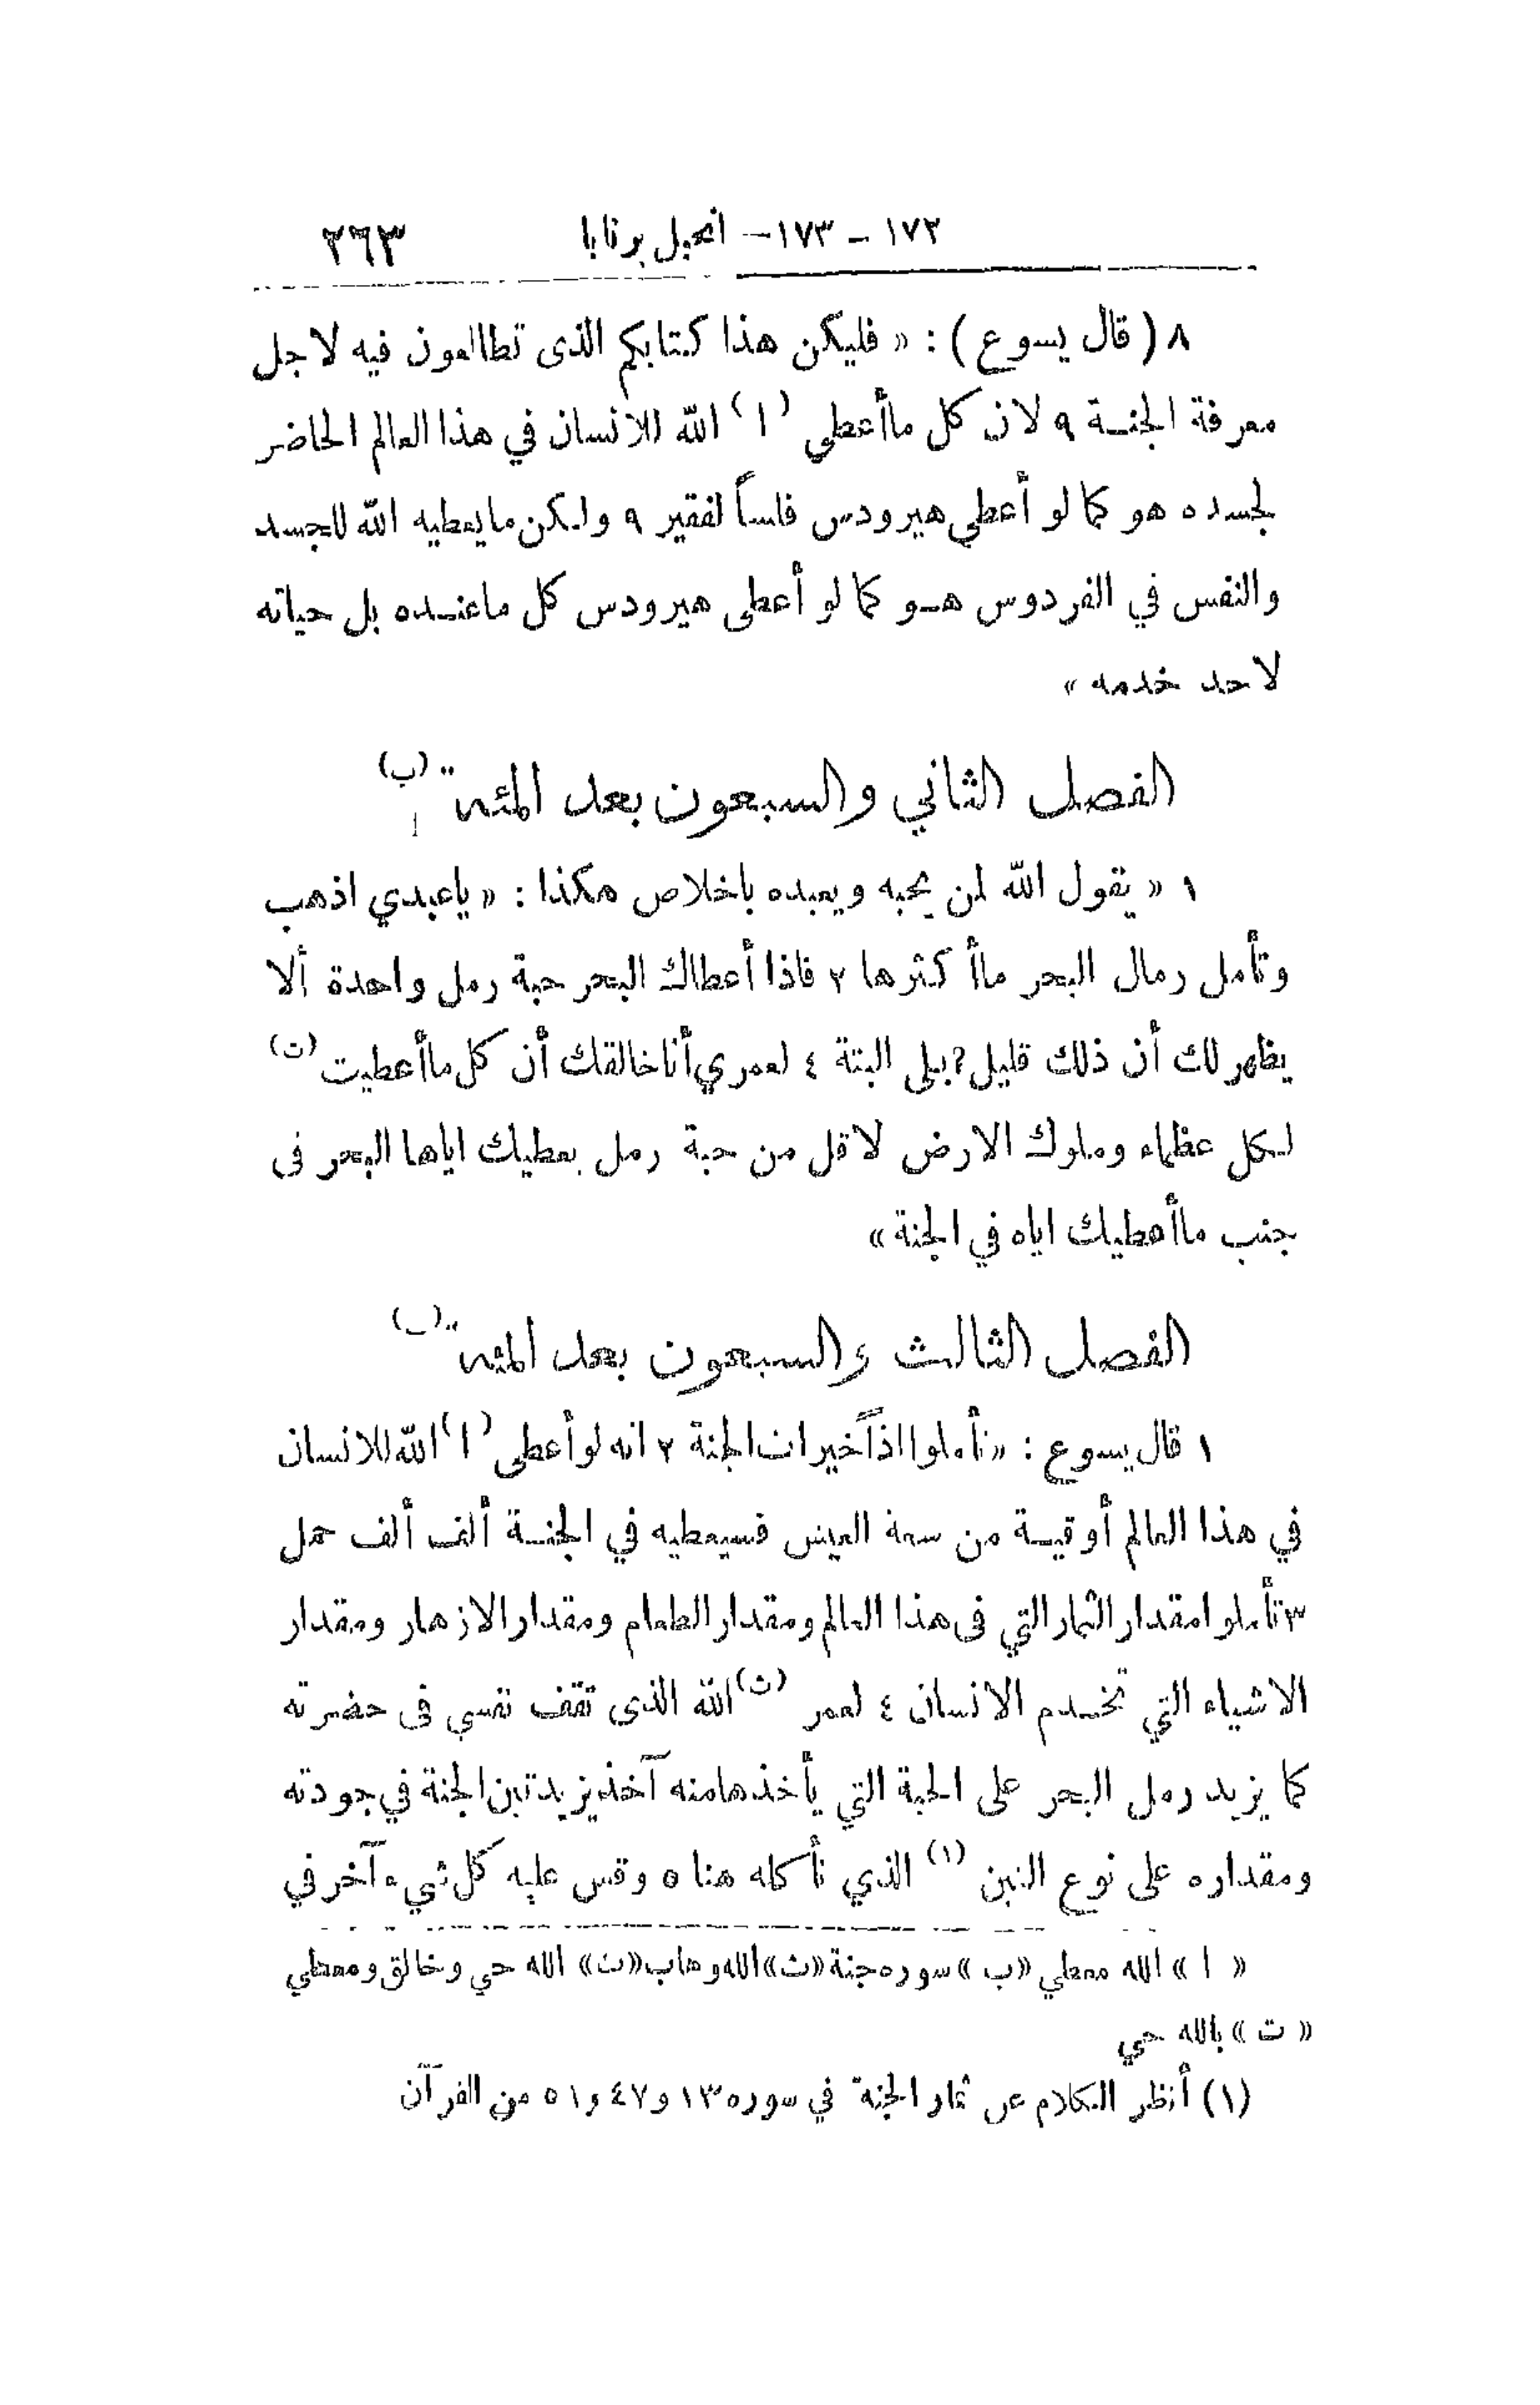 ١٧٢ – ١٧٣– انجيل برنابا ٢٦٣
٨ ( قال يسوع ) : « فليكن هذا كتابكم الذى تطالعون فيه لاجل
معرفة الجنـة ٩ لان كل ماأعطى (ا) الله للانسان في هذا العالم الحاضر
لجسده هو كما لو أعطى هيرودس فلساً لفقير ٩ ولكن مايعطيه الله للجسد
والنفس في الفردوس هـو كما لو أعطى هيرودس كل ماعنـده بل حياته
لاحد خدمه »
الفصل الثاني والسبعون بعد المئة (ب)
١ « يقول الله لمن يحبه ويعبده باخلاص هكذا : « ياعبدي اذهب
وتأمل رمال البحر ماأكثرها ٢ فاذا أعطاك البحر حبة رمل واحدة ألا
يظهر لك أن ذلك قليل؟ بلى البتة ٤ لعمري أنا خالقك أن كل ماأعطيت (ت)
لكل عظماء وملوك الارض لاقل من حبة رمل يعطيك اياها البحر فى
جنب ماأعطيك اياه في الجنة »
الفصل الثالث والسبعون بعد المئة (ب)
١ قال يسوع : « تأملوا اذاً خيرات الجنة ٢ انه لو أعطى (ا) الله للانسان
في هذا العالم أوقيـة من سعة العيش فسيعطيه في الجنـة ألف ألف حمل
٣ تأملوا مقدار الثمار التي فى هذا العالم ومقدار الطعام ومقدار الازهار ومقدار
الاشياء التي تخـدم الانسان ٤ لعمر (ث) الله الذى تقف نفسي فى حضرته
كما يزيد رمل البحر على الحبة التي يأخذها منه آخذ يزيد تين الجنة في جودته
ومقداره على نوع التين (١) الذي نأكله هنا ٥ وقس عليه كل شيء آخر في
« ا » الله معطي « ب » سوره جنة « ث » الله وهاب « ت » الله حي وخالق ومعطي
« ت » بالله حي
(١) أنظر الكلام عن ثمار الجنة في سوره ١٣ و٤٧ و٥١ من القرآن